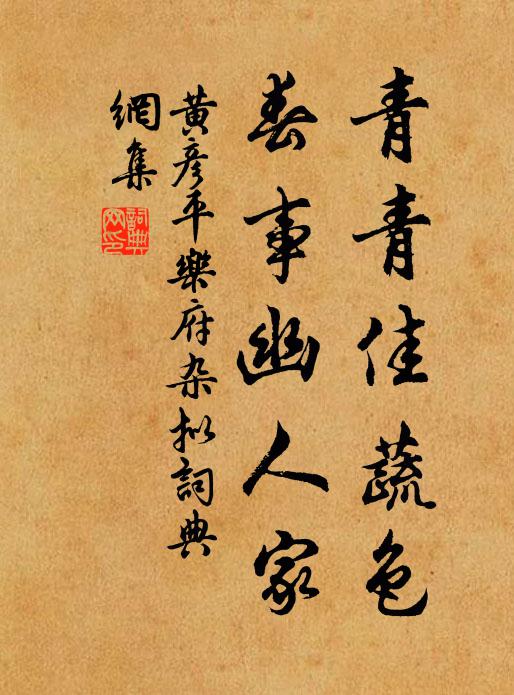 青青佳蔬色
春事幽人家
黃彥平樂府杂拟詞典
網集
詞典
网印